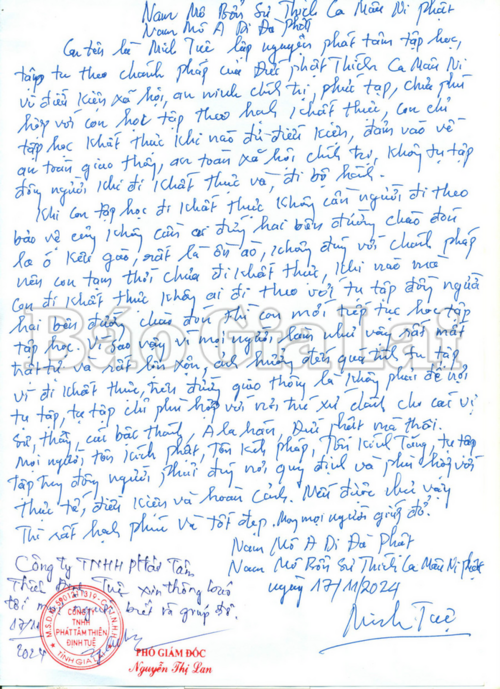 Nam Mô Bổn Sư Thích Ca Mâu Ni Phật
Nam Mô A Di Đà Phật
Con tên là Minh Tuệ lập nguyện phát tâm tập học,
tập tu theo chánh pháp của Đức phật Thích Ca Mâu Ni
vì điều kiện xã hội, an ninh chính trị, phức tạp, chưa phù
hợp với con học tập theo hạnh khất thực, con chỉ
tập học khất thực khi nào đủ điều kiện, đảm bảo về
an toàn giao thông, an toàn xã hội chính trị, không tụ tập
đông người khi đi khất thực và đi bộ hành.
Khi con tập học đi khất thực không cần người đi theo
bảo vệ cũng không cần ai đứng hai bên đường chào đón
la ó kêu gào, rất là ồn ào, không đúng với chánh pháp
nên con tạm thời chưa đi khất thực, khi nào mà
con đi khất thực không ai đi theo với tụ tập đông người
hai bên đường chào đón thì con mới tiếp tục học tập
tập học. Vì sao vậy vì mọi người làm như vậy rất mất
trật tự và rất lộn xộn, ảnh hưởng đến quá trình tu tập
vì đi khất thực, trên đường giao thông là không phải để nơi
tụ tập, tụ tập chỉ phù hợp với nơi trú xứ dành cho các vị
sư, thầy, các bậc thánh, A la hán, Đức phật mà thôi.
Mọi người tôn kính phật, Tôn kính pháp, Tôn kính Tăng, tụ tập
tập trung đông người phải đúng nơi quy định và phù hợp với
thực tế, điều kiện và hoàn cảnh. Nếu được như vậy
Thì rất hạnh phúc và tốt đẹp. Mong mọi người giúp đỡ.
Nam Mô A Di Đà Phật
Nam Mô Bổn Sư Thích Ca Mâu Ni Phật
ngày 17/11/2024
Minh Tuệ
Công ty TNHH Phát Tâm
Thiện Định Tuệ xin thông báo
tới mọi người biết và giúp đỡ.
17/11
2024
CÔNG TY
TNHH
PHÁT TÂM THIỆN
ĐỊNH TUỆ
PHÓ GIÁM ĐỐC
Nguyễn Thị Lan
Báo Gia Lai